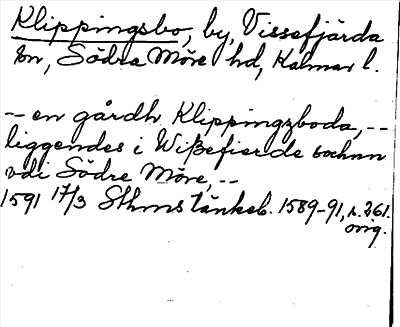 Klippingsbo, by, Vissefjärda
sn, Södra Möre hd, Kalmar l.
-- en gårdh Klippingzboda, --
liggendes i Wißefierde sochnn
vdi Södre Möre, --
1591 17/3 Sthms tänkeb. 1589-91, s. 261.
orig.